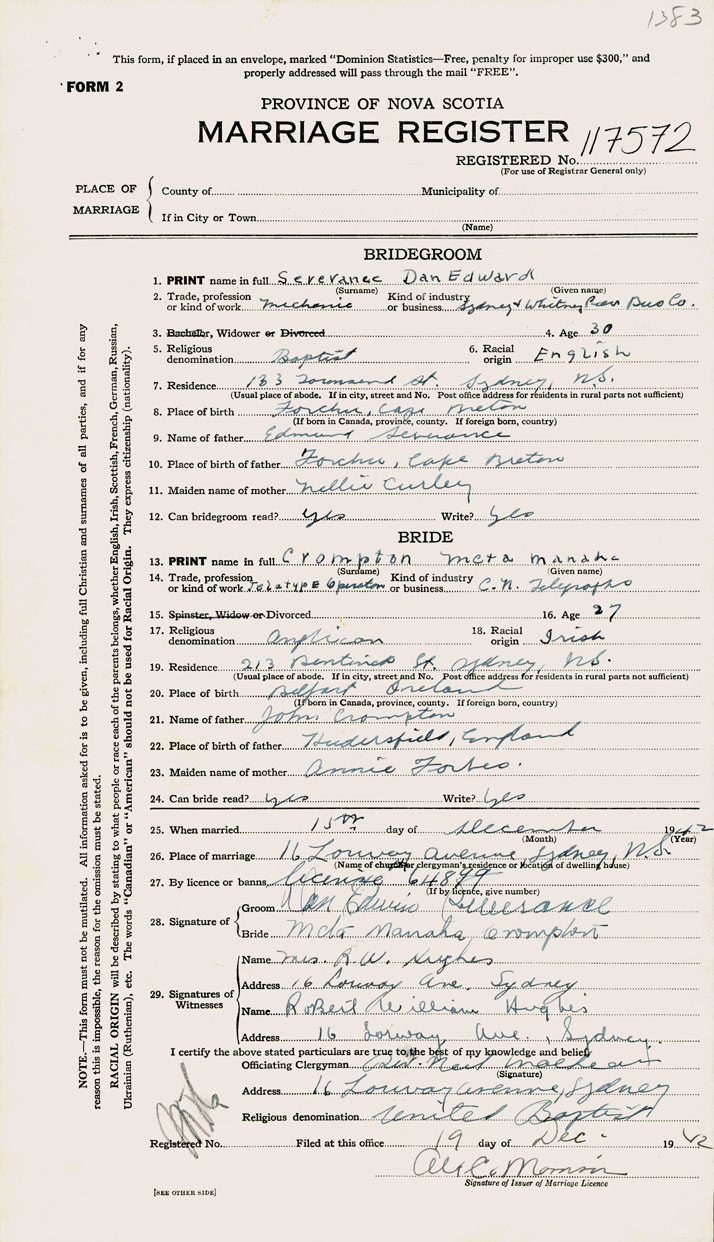 1383
This form, if placed in an envelope, marked "Dominion Statistics—Free, penalty for improper use $300," and
properly addressed will pass through the mail "FREE".
FORM 2
PROVINCE OF NOVA SCOTIA
MARRIAGE REGISTER
REGISTERED No. 117572
(For use of Registrar General only)
PLACE OF MARRIAGE
County of Municipality of
If in City or Town
(Name)
BRIDEGROOM
1. PRINT name in full Severance Dan Edward
(Surname) (Given name)
2. Trade, profession or kind of work Mechanic Kind of industry or business Sydney & Whitney Pier Bus Co.
3. Bachelor, Widower or Divorced 4. Age 30
5. Religious denomination Baptist 6. Racial origin English
7. Residence 133 Townsend St. Sydney, N.S.
(Usual place of abode. If in city, street and No. Post office address for residents in rural parts not sufficient)
8. Place of birth Forchu, Cape Breton
(If born in Canada, province, county. If foreign born, country)
9. Name of father Edmund Severance
10. Place of birth of father Forchu, Cape Breton
11. Maiden name of mother Nellie Curley
12. Can bridegroom read? yes Write? yes
BRIDE
13. PRINT name in full Crompton Meta Manaha
(Surname) (Given name)
14. Trade, profession or kind of work Teletype Operator Kind of industry or business C.N. Telegraphs
15. Spinster, Widow or Divorced 16. Age 27
17. Religious denomination Anglican 18. Racial origin Irish
19. Residence 213 Bentinck St. Sydney, N.S.
(Usual place of abode. If in city, street and No. Post office address for residents in rural parts not sufficient)
20. Place of birth Belfast Ireland
(If born in Canada, province, county. If foreign born, country)
21. Name of father John Crompton
22. Place of birth of father Hudersfield, England
23. Maiden name of mother Annie Forbes.
24. Can bride read? yes Write? yes
25. When married 15th day of December 1942
(Month) (Year)
26. Place of marriage 16 Lorway Avenue Sydney, N.S.
(Name of church or clergyman's residence or location of dwelling house)
27. By licence or banns license 64899
(If by licence, give number)
28. Signature of
Groom Dan Edwin Severance
Bride Meta Manaha Crompton
29. Signatures of Witnesses
Name Mrs. R. W. Hughes
Address 16 Lorway Ave. Sydney
Name Robert William Hughes
Address 16 Lorway Ave., Sydney.
I certify the above stated particulars are true to the best of my knowledge and belief
Officiating Clergyman Rev. Neil
(Signature)
Address 16 Lorway Avenue, Sydney
Religious denomination United Baptist
Registered No. Filed at this office 19 day of Dec. 1942
C. Morrison
Signature of Issuer of Marriage Licence
[SEE OTHER SIDE]
NOTE.—This form must not be mutilated. All information asked for is to be given, including full Christian and surnames of all parties, and if for any
reason this is impossible, the reason for the omission must be stated.
RACIAL ORIGIN will be described by stating to what people or race each of the parents belongs, whether English, Irish, Scottish, French, German, Russian,
Ukrainian (Ruthenian), etc. The words "Canadian" or "American" should not be used for Racial Origin. They express citizenship (nationality).